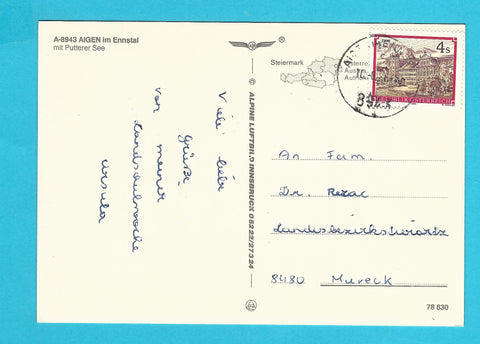 A-8943 AIGEN im Ennstal
mit Putterer See
Steiermark
®
4 s
REPUBLIK ÖSTERREICH
Viele liebe
Grüße
von meiner
Landschulwoche
Ursula
© ALPINE LUFTBILD INNSBRUCK 05222/27324
An Fam.
Dr. Rezac
Landesbezirkstierarzt
8480 Mureck
78 830